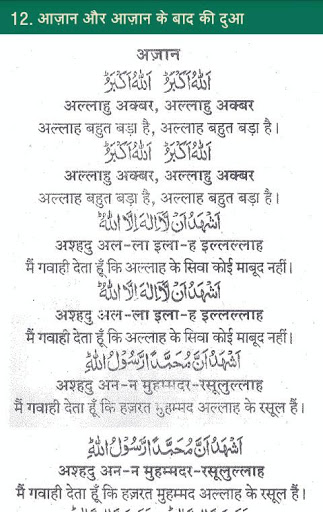 12. आज़ान और आज़ान के बाद की दुआ
अज़ान
اَللّٰهُ اَكْبَرُ اَللّٰهُ اَكْبَرُ
अल्लाहु अक्बर, अल्लाहु अक्बर
अल्लाह बहुत बड़ा है, अल्लाह बहुत बड़ा है।
اَللّٰهُ اَكْبَرُ اَللّٰهُ اَكْبَرُ
अल्लाहु अक्बर, अल्लाहु अक्बर
अल्लाह बहुत बड़ा है, अल्लाह बहुत बड़ा है।
اَشْهَدُ اَنْ لَّاۤ اِلٰهَ اِلَّا اللّٰهُ
अश्हदु अल-ला इला-ह इल्लल्लाह
मैं गवाही देता हूँ कि अल्लाह के सिवा कोई माबूद नहीं।
اَشْهَدُ اَنْ لَّاۤ اِلٰهَ اِلَّا اللّٰهُ
अश्हदु अल-ला इला-ह इल्लल्लाह
मैं गवाही देता हूँ कि अल्लाह के सिवा कोई माबूद नहीं।
اَشْهَدُ اَنَّ مُحَمَّدًا رَّسُوْلُ اللّٰهِ
अश्हदु अन-न मुहम्मदर-रसूलुल्लाह
मैं गवाही देता हूँ कि हज़रत मुहम्मद अल्लाह के रसूल हैं।
اَشْهَدُ اَنَّ مُحَمَّدًا رَّسُوْلُ اللّٰهِ
अश्हदु अन-न मुहम्मदर-रसूलुल्लाह
मैं गवाही देता हूँ कि हज़रत मुहम्मद अल्लाह के रसूल हैं।